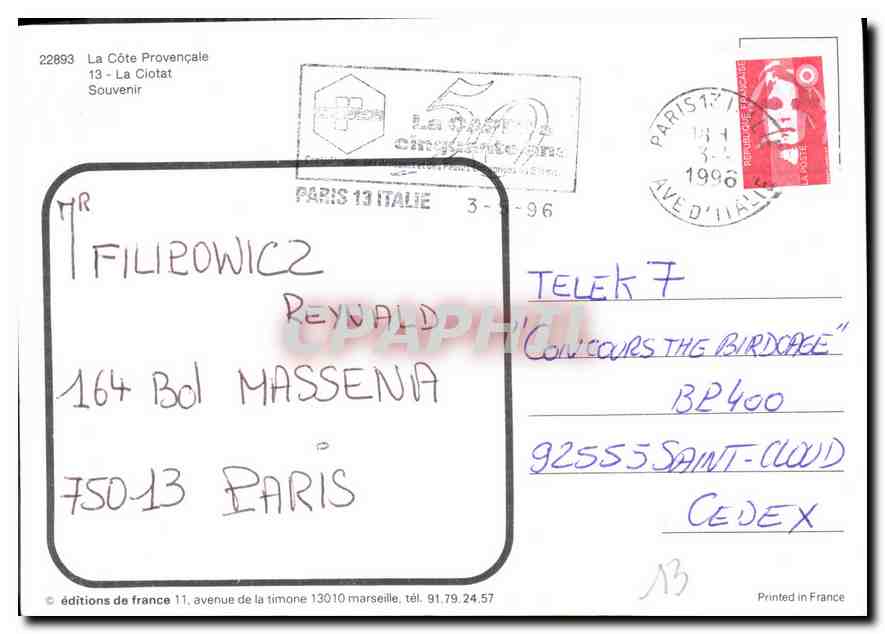 22893 La Côte Provençale
13 - La Ciotat
Souvenir
50
cinquante ans
PARIS 13 ITALIE 3-5-96
PARIS 13
1996
AVE D'ITALIE
REPUBLIQUE FRANÇAISE
LA POSTE
MR
FILIPOWICZ
REYNALD
164 Bd MASSENA
75013 PARIS
CPAPHIL
TELEK 7
"CONCOURS THE BIRDCAGE"
BP 400
92555 SAINT-CLOUD
CEDEX
13
© éditions de france 11, avenue de la timone 13010 marseille, tél. 91.79.24.57
Printed in France